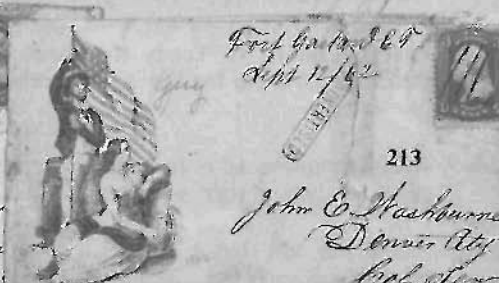 Fort Garland CT
Sept 12/62
213
John E. Washburne
Denver City
Col. Terr